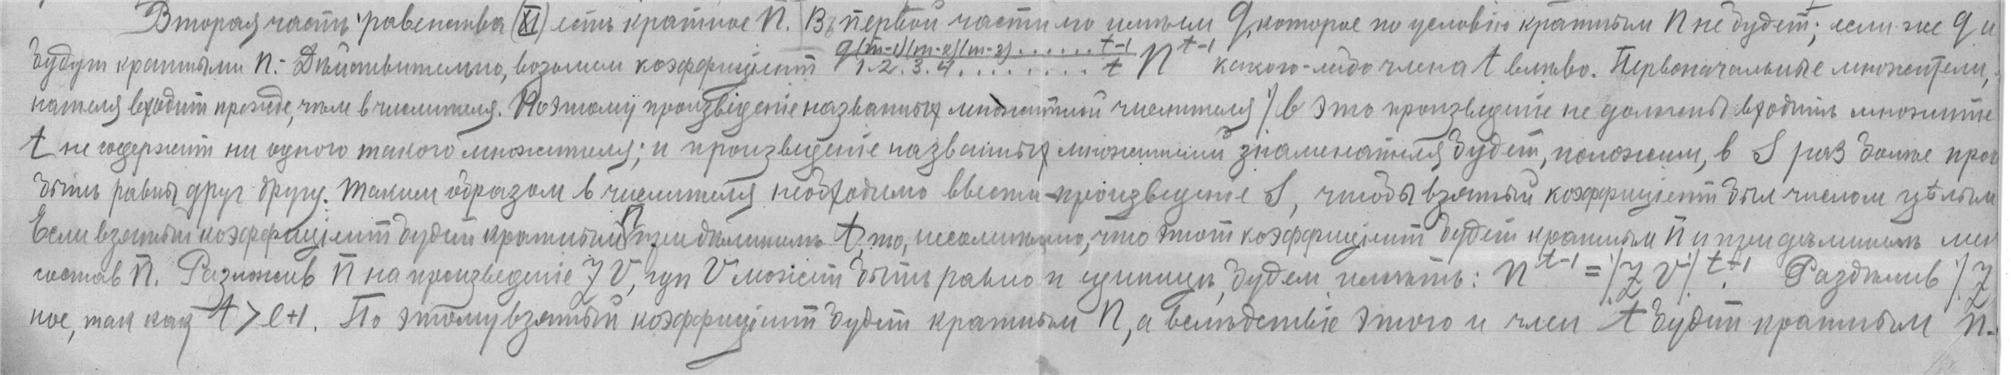 Вторая часть равенства (XI) есть кратное n. В первой части мы имеем q, которое по условію кратным n не будет; если же q и
будут кратными n. Действительно, возьмем коэффиціент q(m-1)(m-2)(m-3)......t-1 / 1.2.3.4.........t n^t-1 какого-либо члена t влево. Первоначальные множители,
нателя входит прежде, чем в числителя. Поэтому произведеніе названных множителей числителя :/ В это произведеніе не должны входить множите
t не содержит ни одного такого множителя; и произведеніе названных множителей знаменателя будет, положим, в S раз более про
быть равны друг другу. Таким образом в числителя необходимо ввести произведеніе S, чтобы взятый коэффиціент был числом целым
Если взятый коэффиціент будет кратным n при делимом t, то, несомненно, что этот коэффиціент будет кратным n и при делимом
состав n. Разложив n на произведеніе Z V, где V может быть равно и единице, будем иметь: n^t-1 = :/Z V:/^t-1. Разделив :/Z
ное, так как t > e+1. По этому взятый коэффиціент будет кратным n, а вследствіе этого и член t будет кратным n.